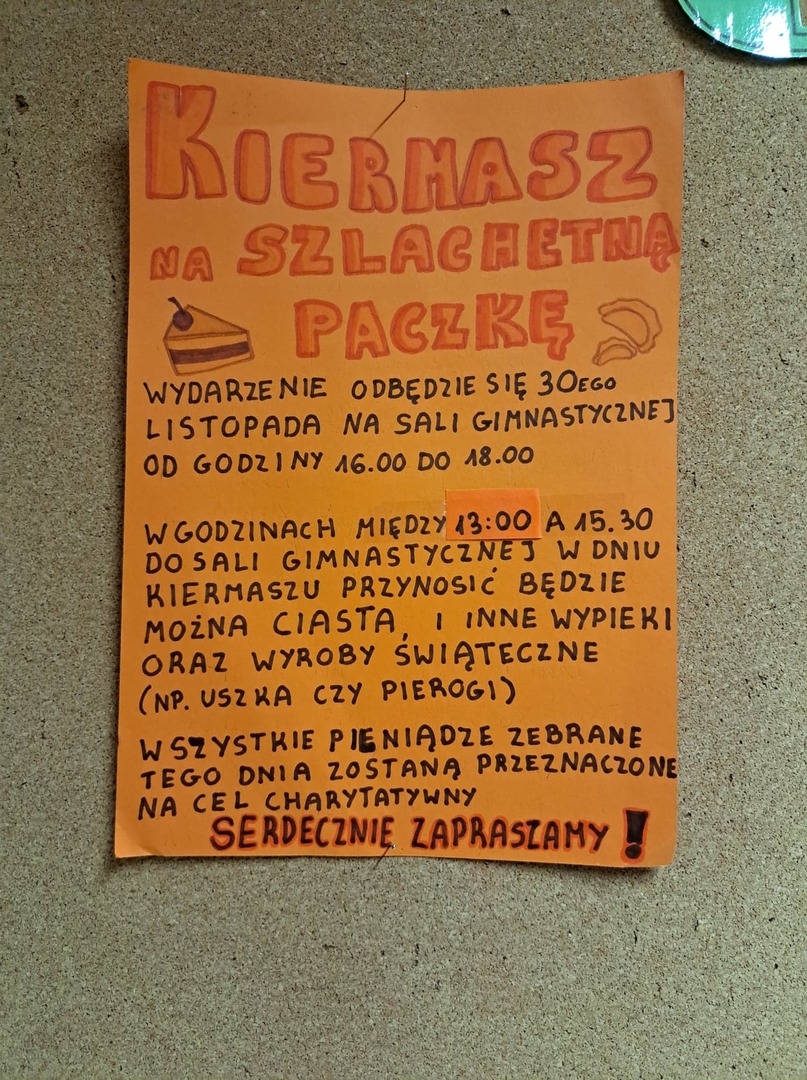 KIERMASZ
NA SZLACHETNĄ
PACZKĘ
WYDARZENIE ODBĘDZIE SIĘ 30EGO
LISTOPADA NA SALI GIMNASTYCZNEJ
OD GODZINY 16.00 DO 18.00
W GODZINACH MIĘDZY 13:00 A 15.30
DO SALI GIMNASTYCZNEJ W DNIU
KIERMASZU PRZYNOSIĆ BĘDZIE
MOŻNA CIASTA, I INNE WYPIEKI
ORAZ WYROBY ŚWIĄTECZNE
(NP. USZKA CZY PIEROGI)
WSZYSTKIE PIENIĄDZE ZEBRANE
TEGO DNIA ZOSTANĄ PRZEZNACZONE
NA CEL CHARYTATYWNY
SERDECZNIE ZAPRASZAMY!